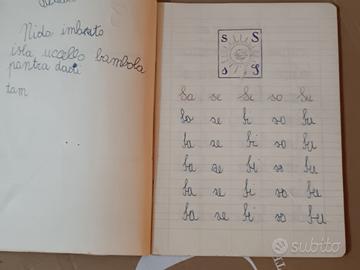 Nido imbuto
isla uccello bambola
pantra dadi
tam
S S
S S
sa se si so su
ba se bi so bu
ba se bi so bu
ba se bi so bu
ba se bi so bu
ba se bi so bu
subito